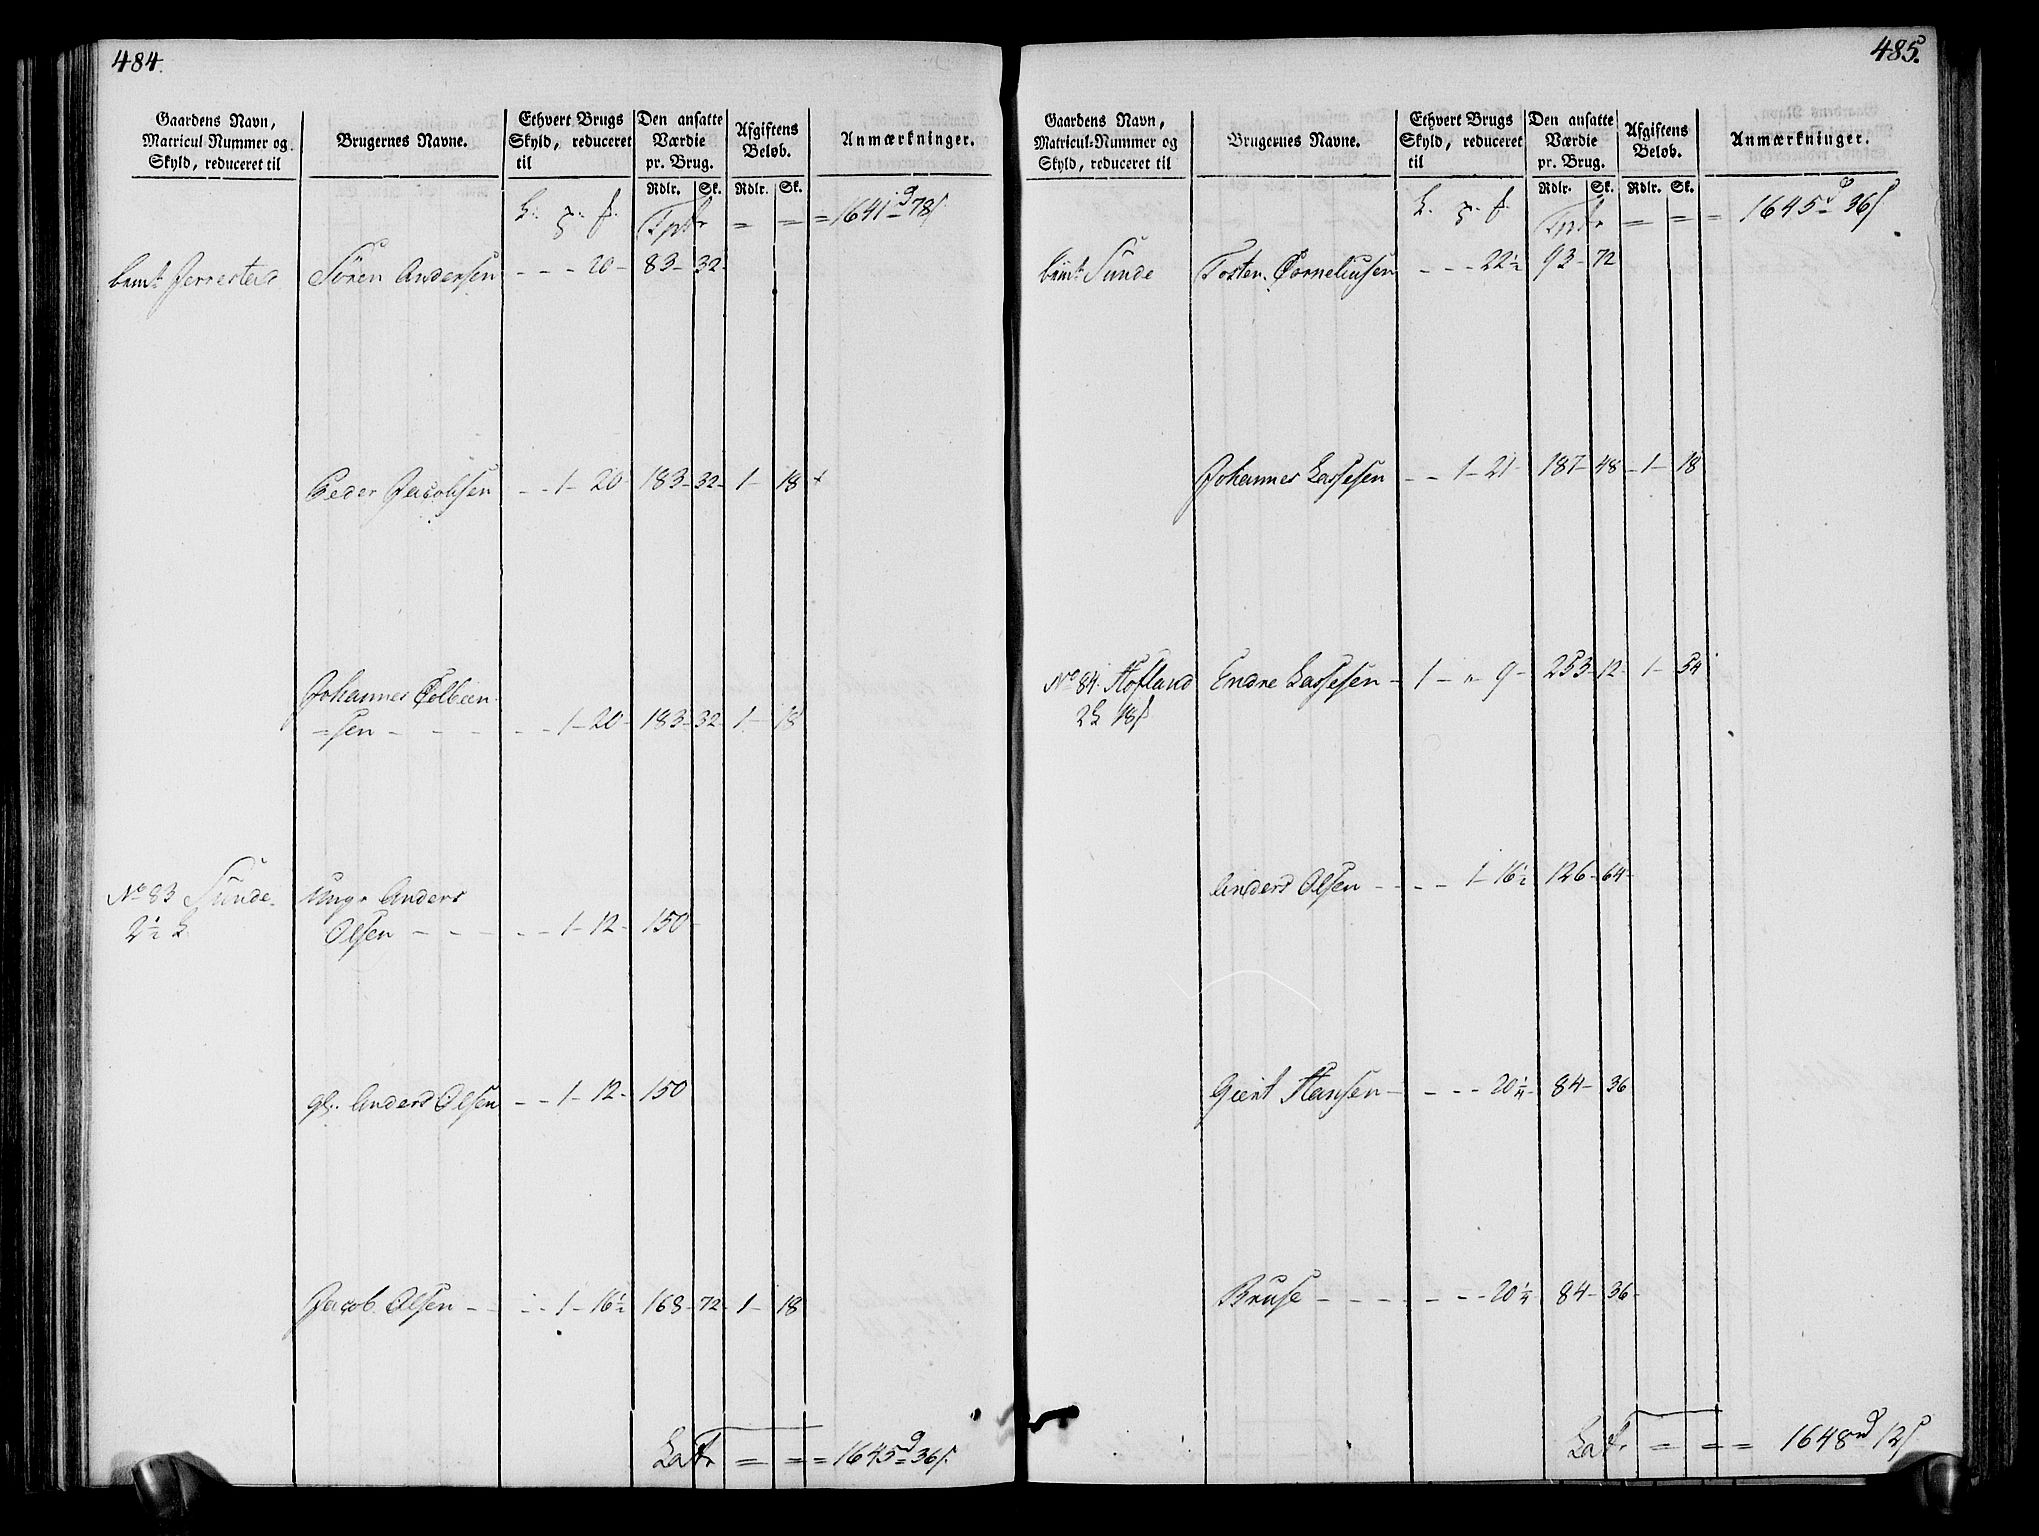 484.
Gaardens Navn, Matricul Nummer og Skyld, reduceret til | Brugernes Navne. | Ethvert Brugs Skyld, reduceret til | Den ansatte Værdie pr. Brug. Rdlr. Sk. | Afgiftens Beløb. Rdlr. Sk. | Anmærkninger.
Tpbr = = = 1641 d 78 ſ
bemte Jerrestad Sören Andersen - - - 20 - 83 - 32 -
Peder Jacobsen - - 1 - 20 - 183 - 32 - 1 - 18 +
Johannes Colbeen-
=sen - - - - - 1 - 20 - 183 - 32 - 1 - 18
No 83 Sunde. Unge Anders
2½ L Olsen - - - - - 1 - 12 - 150 -
gl. Anders Olsen - - 1 - 12 - 150
Jacob Olsen - - - - 1 - 16½ 168 - 72 - 1 - 18
Latr = = = 1645 d 36 ſ.
485.
Gaardens Navn, Matricul-Nummer og Skyld, reduceret til | Brugernes Navne. | Ethvert Brugs Skyld, reduceret til | Den ansatte Værdie pr. Brug. Rdlr. Sk. | Afgiftens Beløb. Rdlr. Sk. | Anmærkninger.
Tpbr = = = 1645 d 36 ſ
bemt Sunde Tosten Corneliusen - - - 22½ 93 - 72
Johannes Lassesen - - 1 - 21 - 187 - 48 - 1 - 18
No 84. Hofland Endre Lassesen - 1 - " 9 - 253 - 12 - 1 - 54
2 L 18 ſ
Anders Olsen - - - - 1 - 16½ 126 - 64 -
Gient Hansen - - - - 20¼ - 84 - 36
Bruse - - - - - - - 20¼ 84 - 36 -
Latr = = = 1648 d 12 ſ